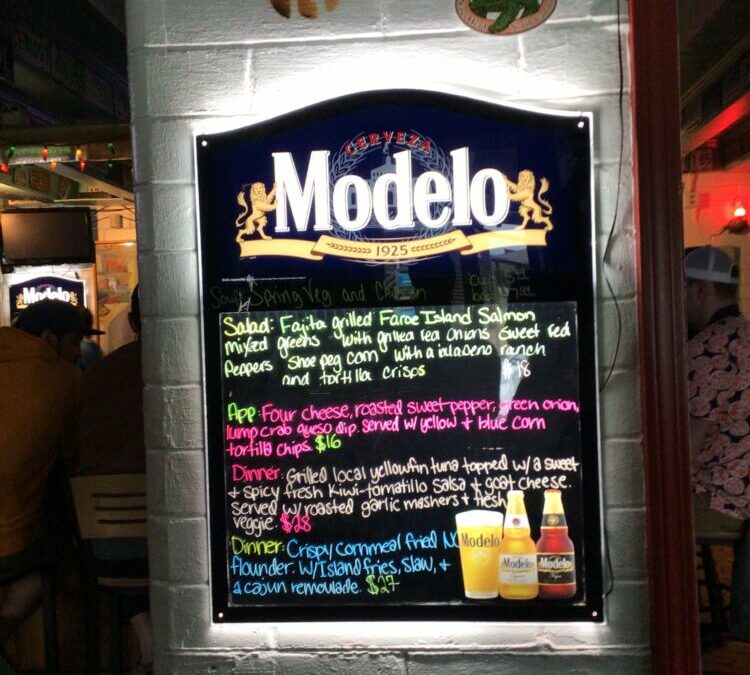 CERVEZA
Modelo
1925
Soup: Spring Veg and Chicken
Salad: Fajita grilled Faroe Island Salmon
mixed greens with grilled red onions sweet red
Peppers shoe peg corn with a jalapeno ranch
and tortilla crisps $18
App: Four cheese, roasted sweet pepper, green onion,
lump crab queso dip. served w/ yellow + blue corn
tortilla chips. $16
Dinner: Grilled local yellowfin tuna topped w/ a sweet
+ spicy fresh kiwi-tomatillo salsa + goat cheese.
served w/ roasted garlic mashers + fresh
veggie. $28
Dinner: Crispy cornmeal fried NC
flounder. w/ Island fries, slaw, +
a cajun remoulade. $27
Modelo
Modelo
Modelo
Modelo